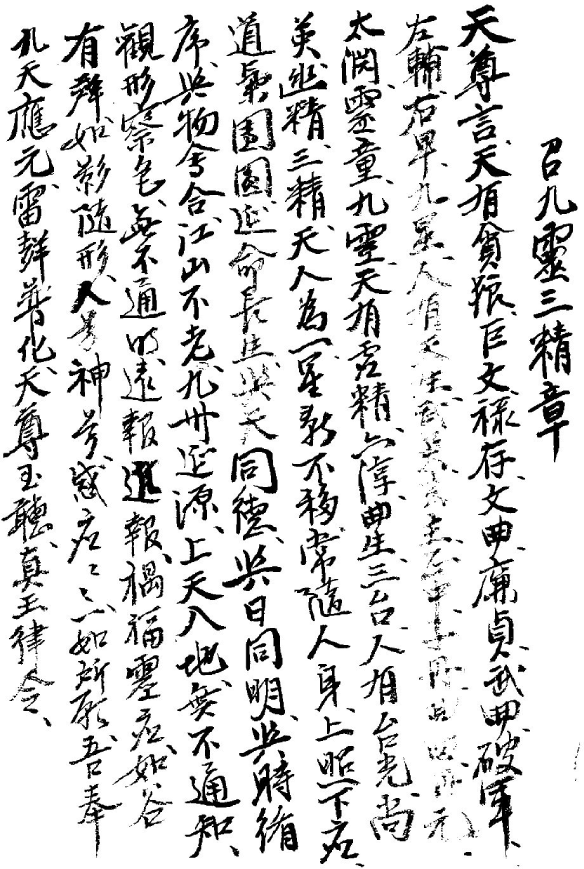 召九靈三精章
天尊言天有貪狼巨文祿存文曲廉貞武曲破軍
左輔右畢九星人有天生
太淵靈童九靈天有虛精六淳曲生三台人有台光尚
英幽精三精天人為一星影不移常隨人身上照下应
道氣團圓延命長生與天同德與日同明與時偹
序與物會合江山不老九州延源上天入地無不通知
觀形察色無不通明遠報近報禍福靈应如谷
有聲如影隨形神应如所願吾奉
九天應元雷声普化天尊玉聽真王律令